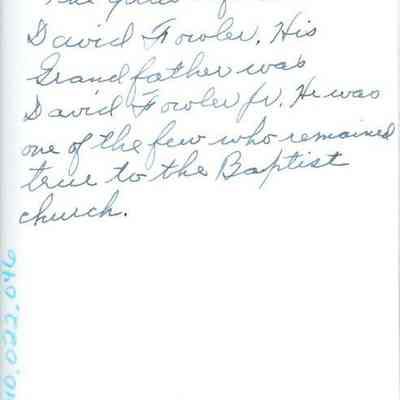 David Fowler. His
Grandfather was
David Fowler Jr. He was
one of the few who remained
true to the Baptist
church.
10.022.046